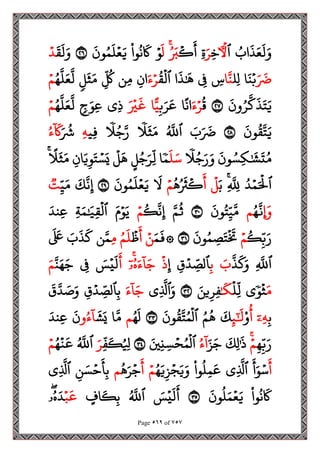 وَلَعَذَابُ ٱلۡأٓخِرَةِ أَكۡبَرُۚ لَوۡ كَانُواْ يَعۡلَمُونَ ٢٦ وَلَقَدۡ
ضَرَبۡنَا لِلنَّاسِ فِي هَٰذَا ٱلۡقُرۡءَانِ مِن كُلِّ مَثَلٖ لَّعَلَّهُمۡ
يَتَذَكَّرُونَ ٢٧ قُرۡءَانًا عَرَبِيًّا غَيۡرَ ذِي عِوَجٖ لَّعَلَّهُمۡ
يَتَّقُونَ ٢٨ ضَرَبَ ٱللَّهُ مَثَلٗا رَّجُلٗا فِيهِ شُرَكَآءُ
مُتَشَٰكِسُونَ وَرَجُلٗا سَلَمٗا لِّرَجُلٍ هَلۡ يَسۡتَوِيَانِ مَثَلًاۚ
ٱلۡحَمۡدُ لِلَّهِۚ بَلۡ أَكۡثَرُهُمۡ لَا يَعۡلَمُونَ ٢٩ إِنَّكَ مَيِّتٞ
وَإِنَّهُم مَّيِّتُونَ ٣٠ ثُمَّ إِنَّكُمۡ يَوۡمَ ٱلۡقِيَٰمَةِ عِندَ
رَبِّكُمۡ تَخۡتَصِمُونَ ٣١ ۞ فَمَنۡ أَظۡلَمُ مِمَّن كَذَبَ عَلَى
ٱللَّهِ وَكَذَّبَ بِٱلصِّدۡقِ إِذۡ جَآءَهُۥٓۚ أَلَيۡسَ فِي جَهَنَّمَ
مَثۡوٗى لِّلۡكَٰفِرِينَ ٣٢ وَٱلَّذِي جَآءَ بِٱلصِّدۡقِ وَصَدَّقَ
بِهِۦٓ أُوْلَٰٓئِكَ هُمُ ٱلۡمُتَّقُونَ ٣٣ لَهُم مَّا يَشَآءُونَ عِندَ
رَبِّهِمۡۚ ذَٰلِكَ جَزَآءُ ٱلۡمُحۡسِنِينَ ٣٤ لِيُكَفِّرَ ٱللَّهُ عَنۡهُمۡ
أَسۡوَأَ ٱلَّذِي عَمِلُواْ وَيَجۡزِيَهُمۡ أَجۡرَهُم بِأَحۡسَنِ ٱلَّذِي
كَانُواْ يَعۡمَلُونَ ٣٥ أَلَيۡسَ ٱللَّهُ بِكَافٍ عَبۡدَهُۥۖ
Page ٥٦٩ of ٧٥٧